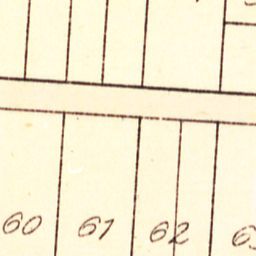 60 61 62